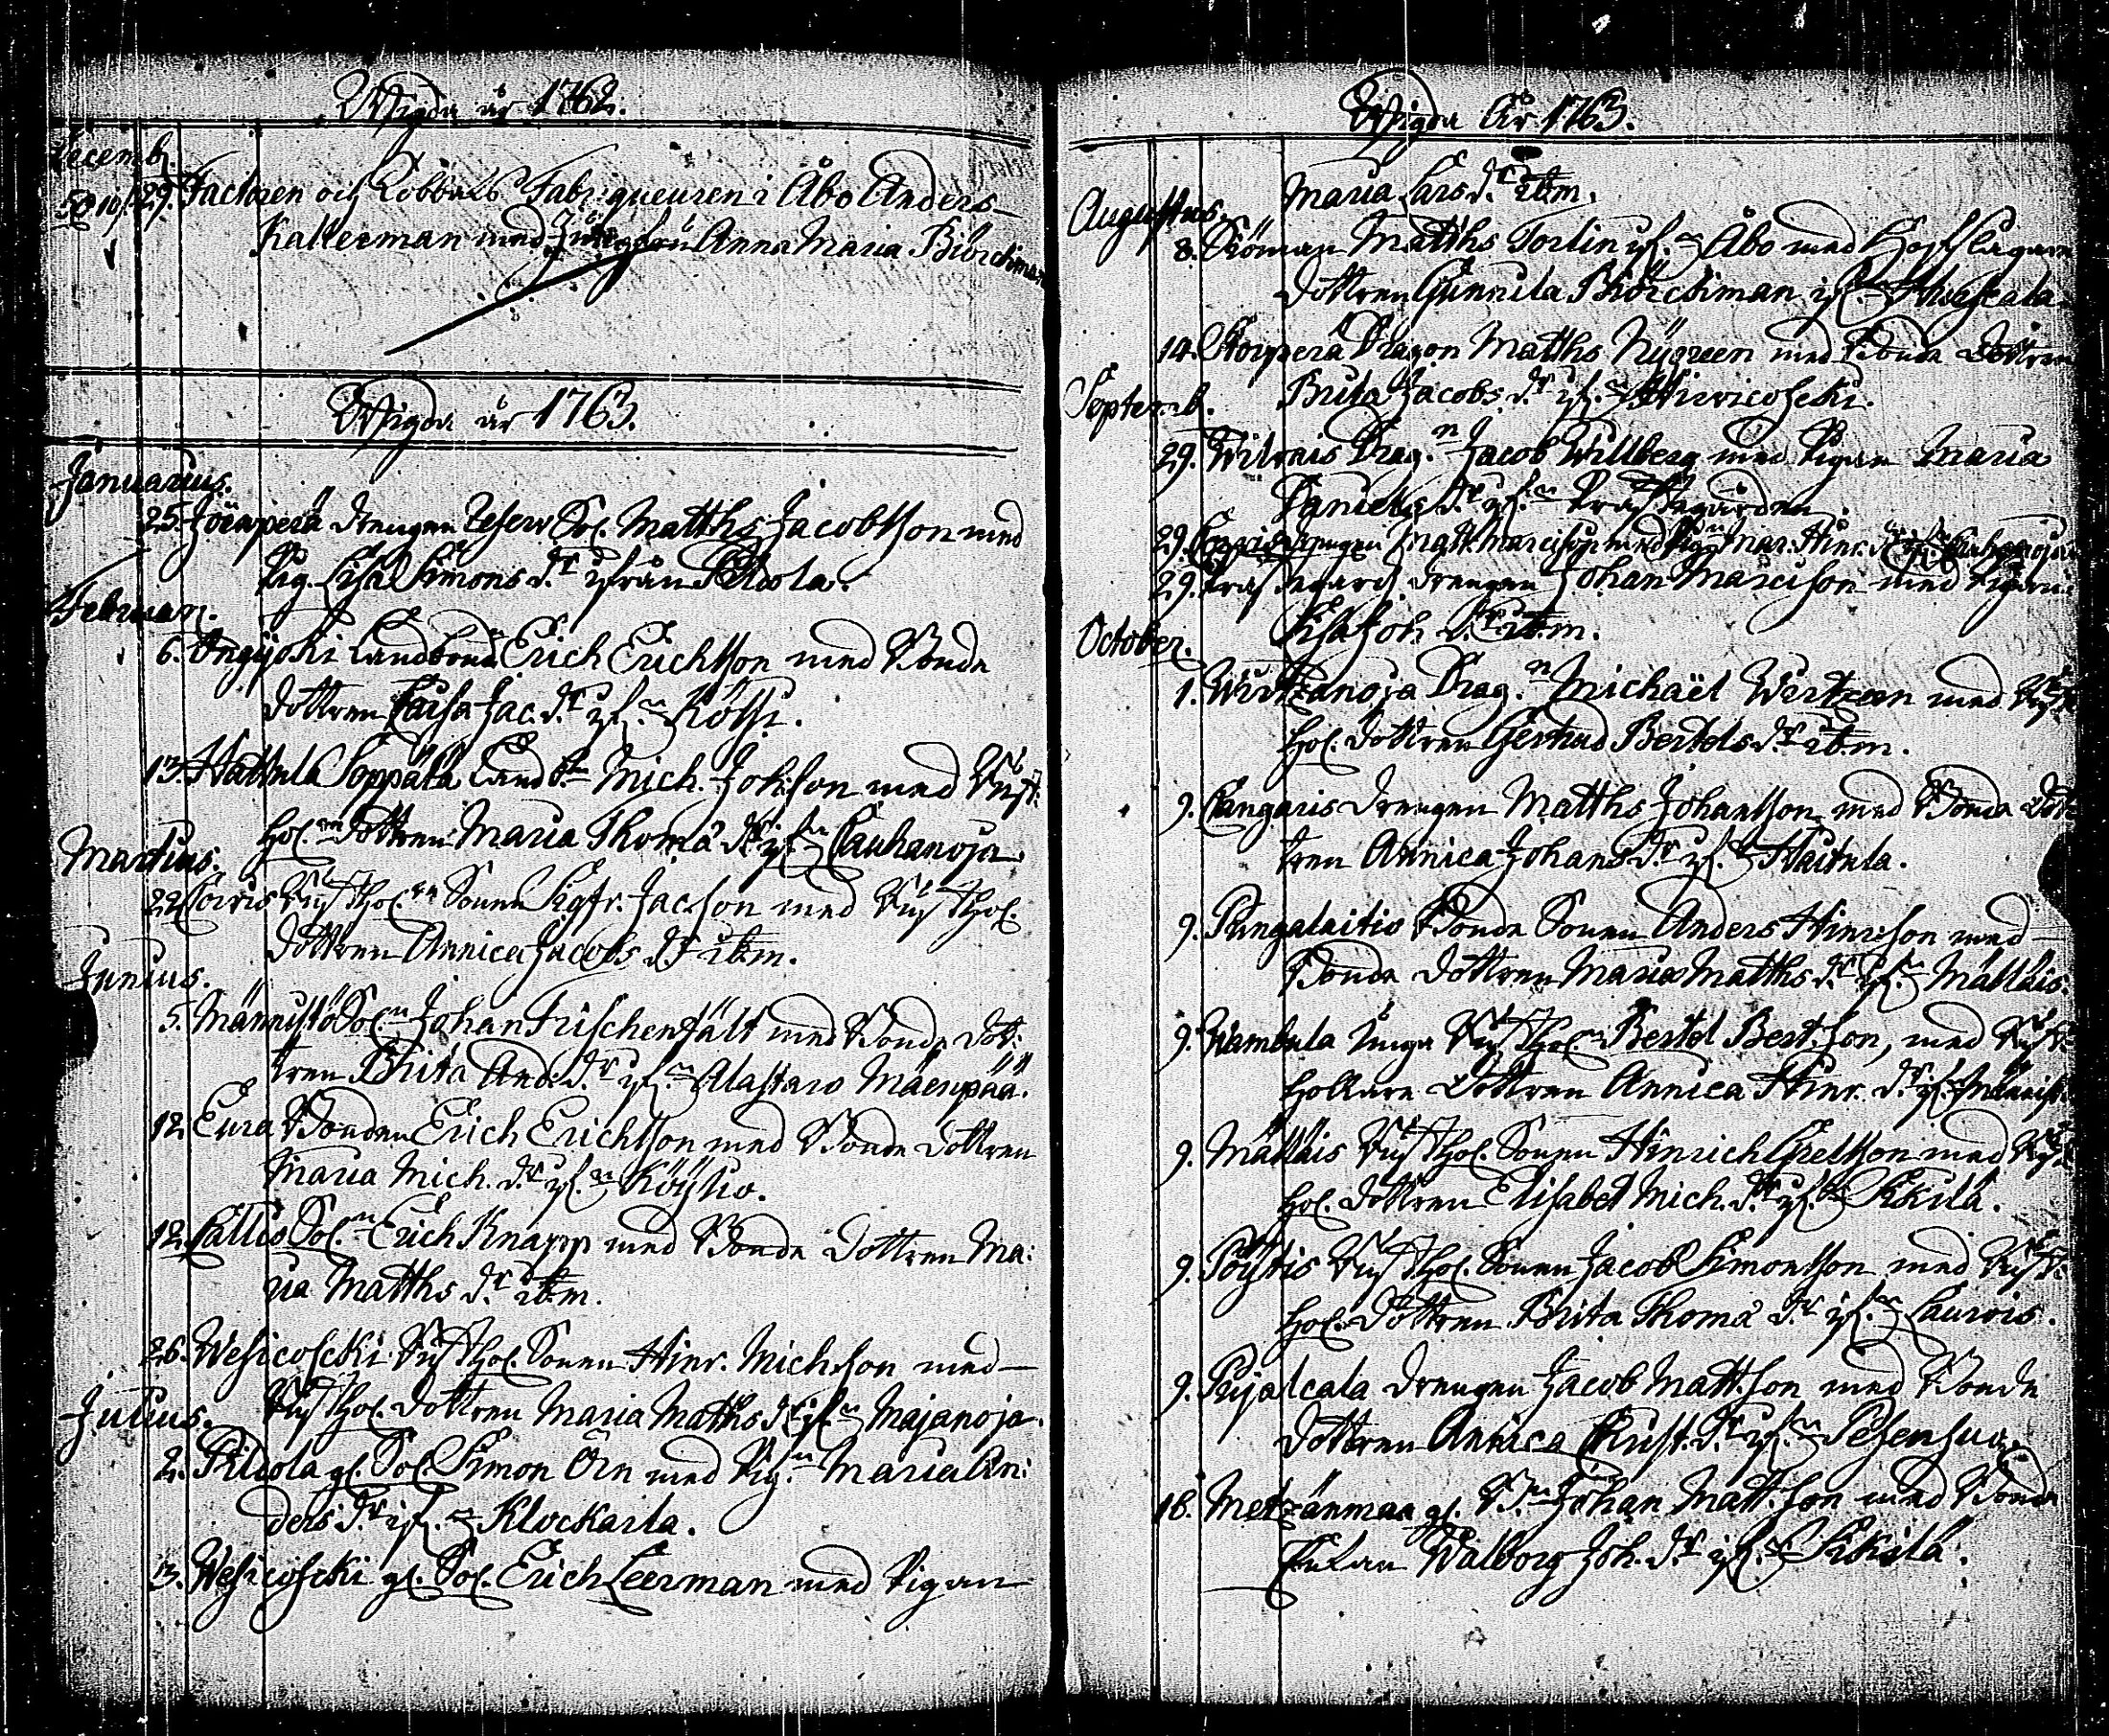 Wigda år 1762.
Decemb.
29. Factoren och Tobbaks Fabriqueuren i Åbo Anders
Kallerman med Jungfru Anna Maria Biörckman
Wigda år 1763.
Januarius.
25. Drengen Reserv Sol. Matths Jacobsson med
Pig. Lisa Simons d:r ifrån
Februar.
6. Ongijoki Landbond Erich Erichsson med Bonde
dottren Caisa Jac. d:r if:n
13. Hattula Soppala Landb:n Mich. Joh:son med Rust
hol. dottren Maria Thoma d:r if:n Cauhanoja
Martius.
22. Rusthol. Sonen Sigfr. Jacson med Rusthol.
dottren Annica Jacobs d:r ib:m.
Junius.
5. Männistö Sol:n Johan Frischenfält med Bonde dot:
tren Brita And. d:r if:n Alastaro Mäenpää.
12. Eura Bonden Erich Erichsson med Bonde dottren
Maria Mich. d:r if:n Köÿliö.
12. Sol:n Erich Knapp med Bonde dottren Ma:
ria Matths d:r ib:m.
26. Wesicoscki Rusthol. Sonen Hinr. Michson med
Rusthol. dottren Maria Matths d:r if:n Majanoja.
Julius.
2. gl. Sol. Simon Örn med Pig:n Maria An:
ders d:r if:n Klockarla.
3. Wesicoscki gl. Sol. Erich Leerman med Pigan
Wigda År 1763.
Maria Lars d:r ib:m.
Augustus.
8. Matths Torlin if:n Åbo med
dottren Gunnila Biörckman if:n
14. Dragon Matths Nÿgreen med Bonde dottren
Brita Jacobs d:r if:n
Septemb.
29. Drag:n Jacob Willberg med Pigan Maria
Daniels d:r if:n Prästegården
29. drengen Marcisson med Pig:n Mar. Hinr. d:r
29. Prästegårds drengen Johan Marcisson med Pigan
Lisa Joh. d:r ib:m.
October.
1. Wirtzanoja Drag:n Michaël Wertreen med Rust
hol. dottren Gertrud Bertels d:r ib:m.
9. Cangaris drengen Matths Johansson med Bonde dot
tren Annica Johans d:r if:n
9. Pungalaitio Bonde Sonen Anders Hinr:son med
Bonde dottren Maria Matths d:r if:n Mällais.
9. Wambula unga Rusthol. Bertel Bert:son, med Rust
hollare dottren Annica Hinr. d:r if:n
9. Mällais Rusthol. Sonen Hinrich Grelsson med Rust
hol. dottren Elisabet Mich. d:r if:n
9. Pöÿtis Rusthol. Sonen Jacob Simonsson med Rust
hol. dottren Brita Thoma d:r if:n
9. Pujalcala drengen Jacob Mattson med Bonde
dottren Annica d:r if:n Pesensuo.
16. Metzänmaa gl. B:n Johan Matt:son med Bonde
Enkan Walborg Joh. d:r if:n